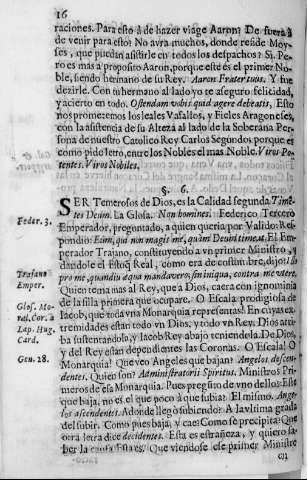 16
raciones. Para esto â de hazer viage Aaron? De fuera â
de venir para esto? No avra muchos, donde reside Moy-
ses, que puedan assistirle en todos los despachos? Si. Pe-
ro es mas a proposito Aaron, porque este es el primer No-
ble, siendo hermano de su Rey. Aaron Frater tuus. Y fue
dezirle. Con tu hermano al lado yo te asseguro felicidad,
y acierto en todo. Ostendam vobis quid agere debeatis. Esto
nos prometemos los leales Vasallos, y Fieles Aragoneses,
con la asistencia de su Alteza al lado de la Soberana Per-
sona de nuestro Catolico Rey Carlos Segundo: porque es
como pide letro, entre los Nobles el mas Noble. Viros Po-
tentes. Viros Nobiles.
§. 6.
SER Temerosos de Dios, es la Calidad segunda Time-
tes Deum. La Glosa. Non homines. Federico Tercero
Feder. 3.
Emperador, preguntado, a quien queria por Valido: Res-
pondio: Eum, qui non magis me, quàm Deum timeat. El Em-
perador Trajano, constituyendo a vn primer Ministro, y
Trajano
Emper.
dandole el Estoq Real, como era de costumbre, dijo: In
pro me, quandiu æqua mandavero, sin iniqua, contra me vtere.
Quien tema mas al Rey, que a Dios, caera con ignominia
de la silla primera que ocupare. O Escala prodigiosa de
Glos. Mo-
ral. Cor. à
Lap. Hug.
Card.
Iacob, que toda vna Monarquia representas! En cuyas ex-
tremidades estan todo vn Dios, y todo vn Rey. Dios arri-
ba sustentandola, y Iacob Rey abajo teniendola. De Dios,
y del Rey estan dependientes las Coronas. O Escala! O
Gen. 28.
Monarquia! Que veo Angeles que bajan? Angelos descen-
dentes. Quien son? Administratoris Spiritus. Ministros Pri-
meros de esa Monarquia. Pues pregunto de vno dellos: Este
que baja, no es el que poco â que subia? El mismo. Ange-
los ascendentes. Adonde llegô subiendo? A la vltima grada
del subir. Como pues baja, y cae? Como se precipita? Que
otra letra dice decidentes. Esta es estrañeza, y quiero sa-
ber la causa. Esta es. Que viendose ese primer Ministro